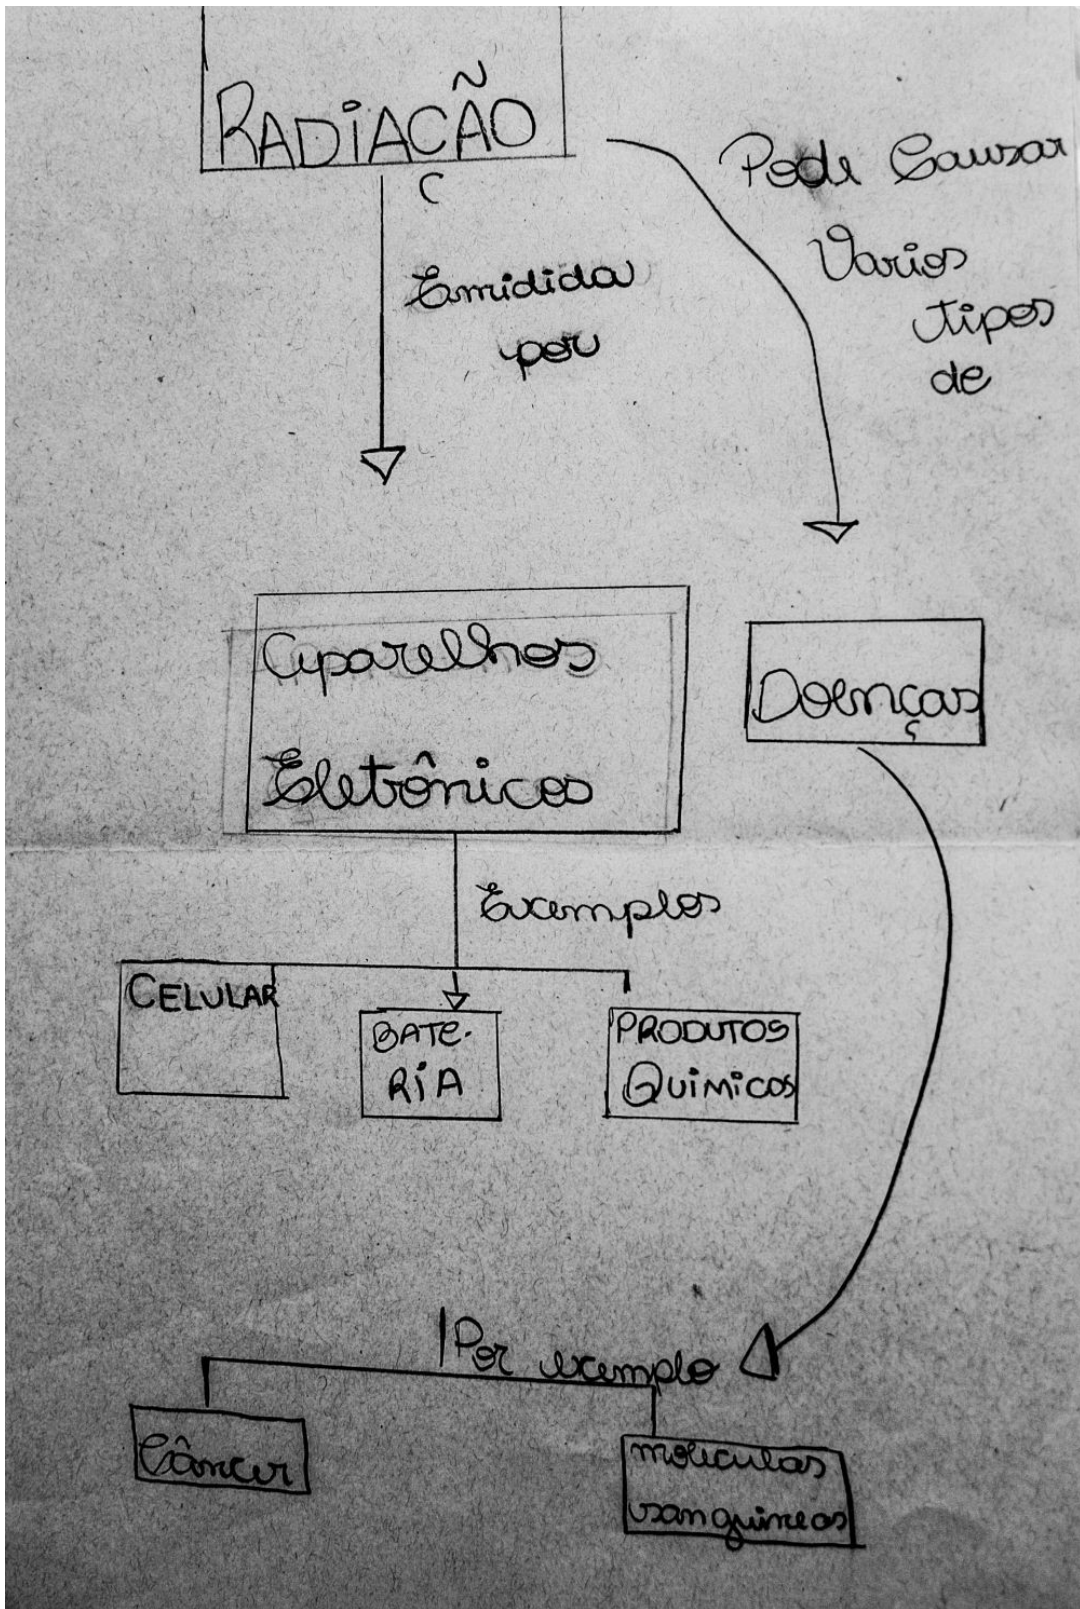 RADIAÇÃO
Pode Causar
Varios
tipos
de
Emidida
por
Aparelhos
Eletrônicos
Doenças
Exemplos
CELULAR
BATE-
RIA
PRODUTOS
QUIMICOS
Por exemplo
Câncer
moleculas
sanguineas